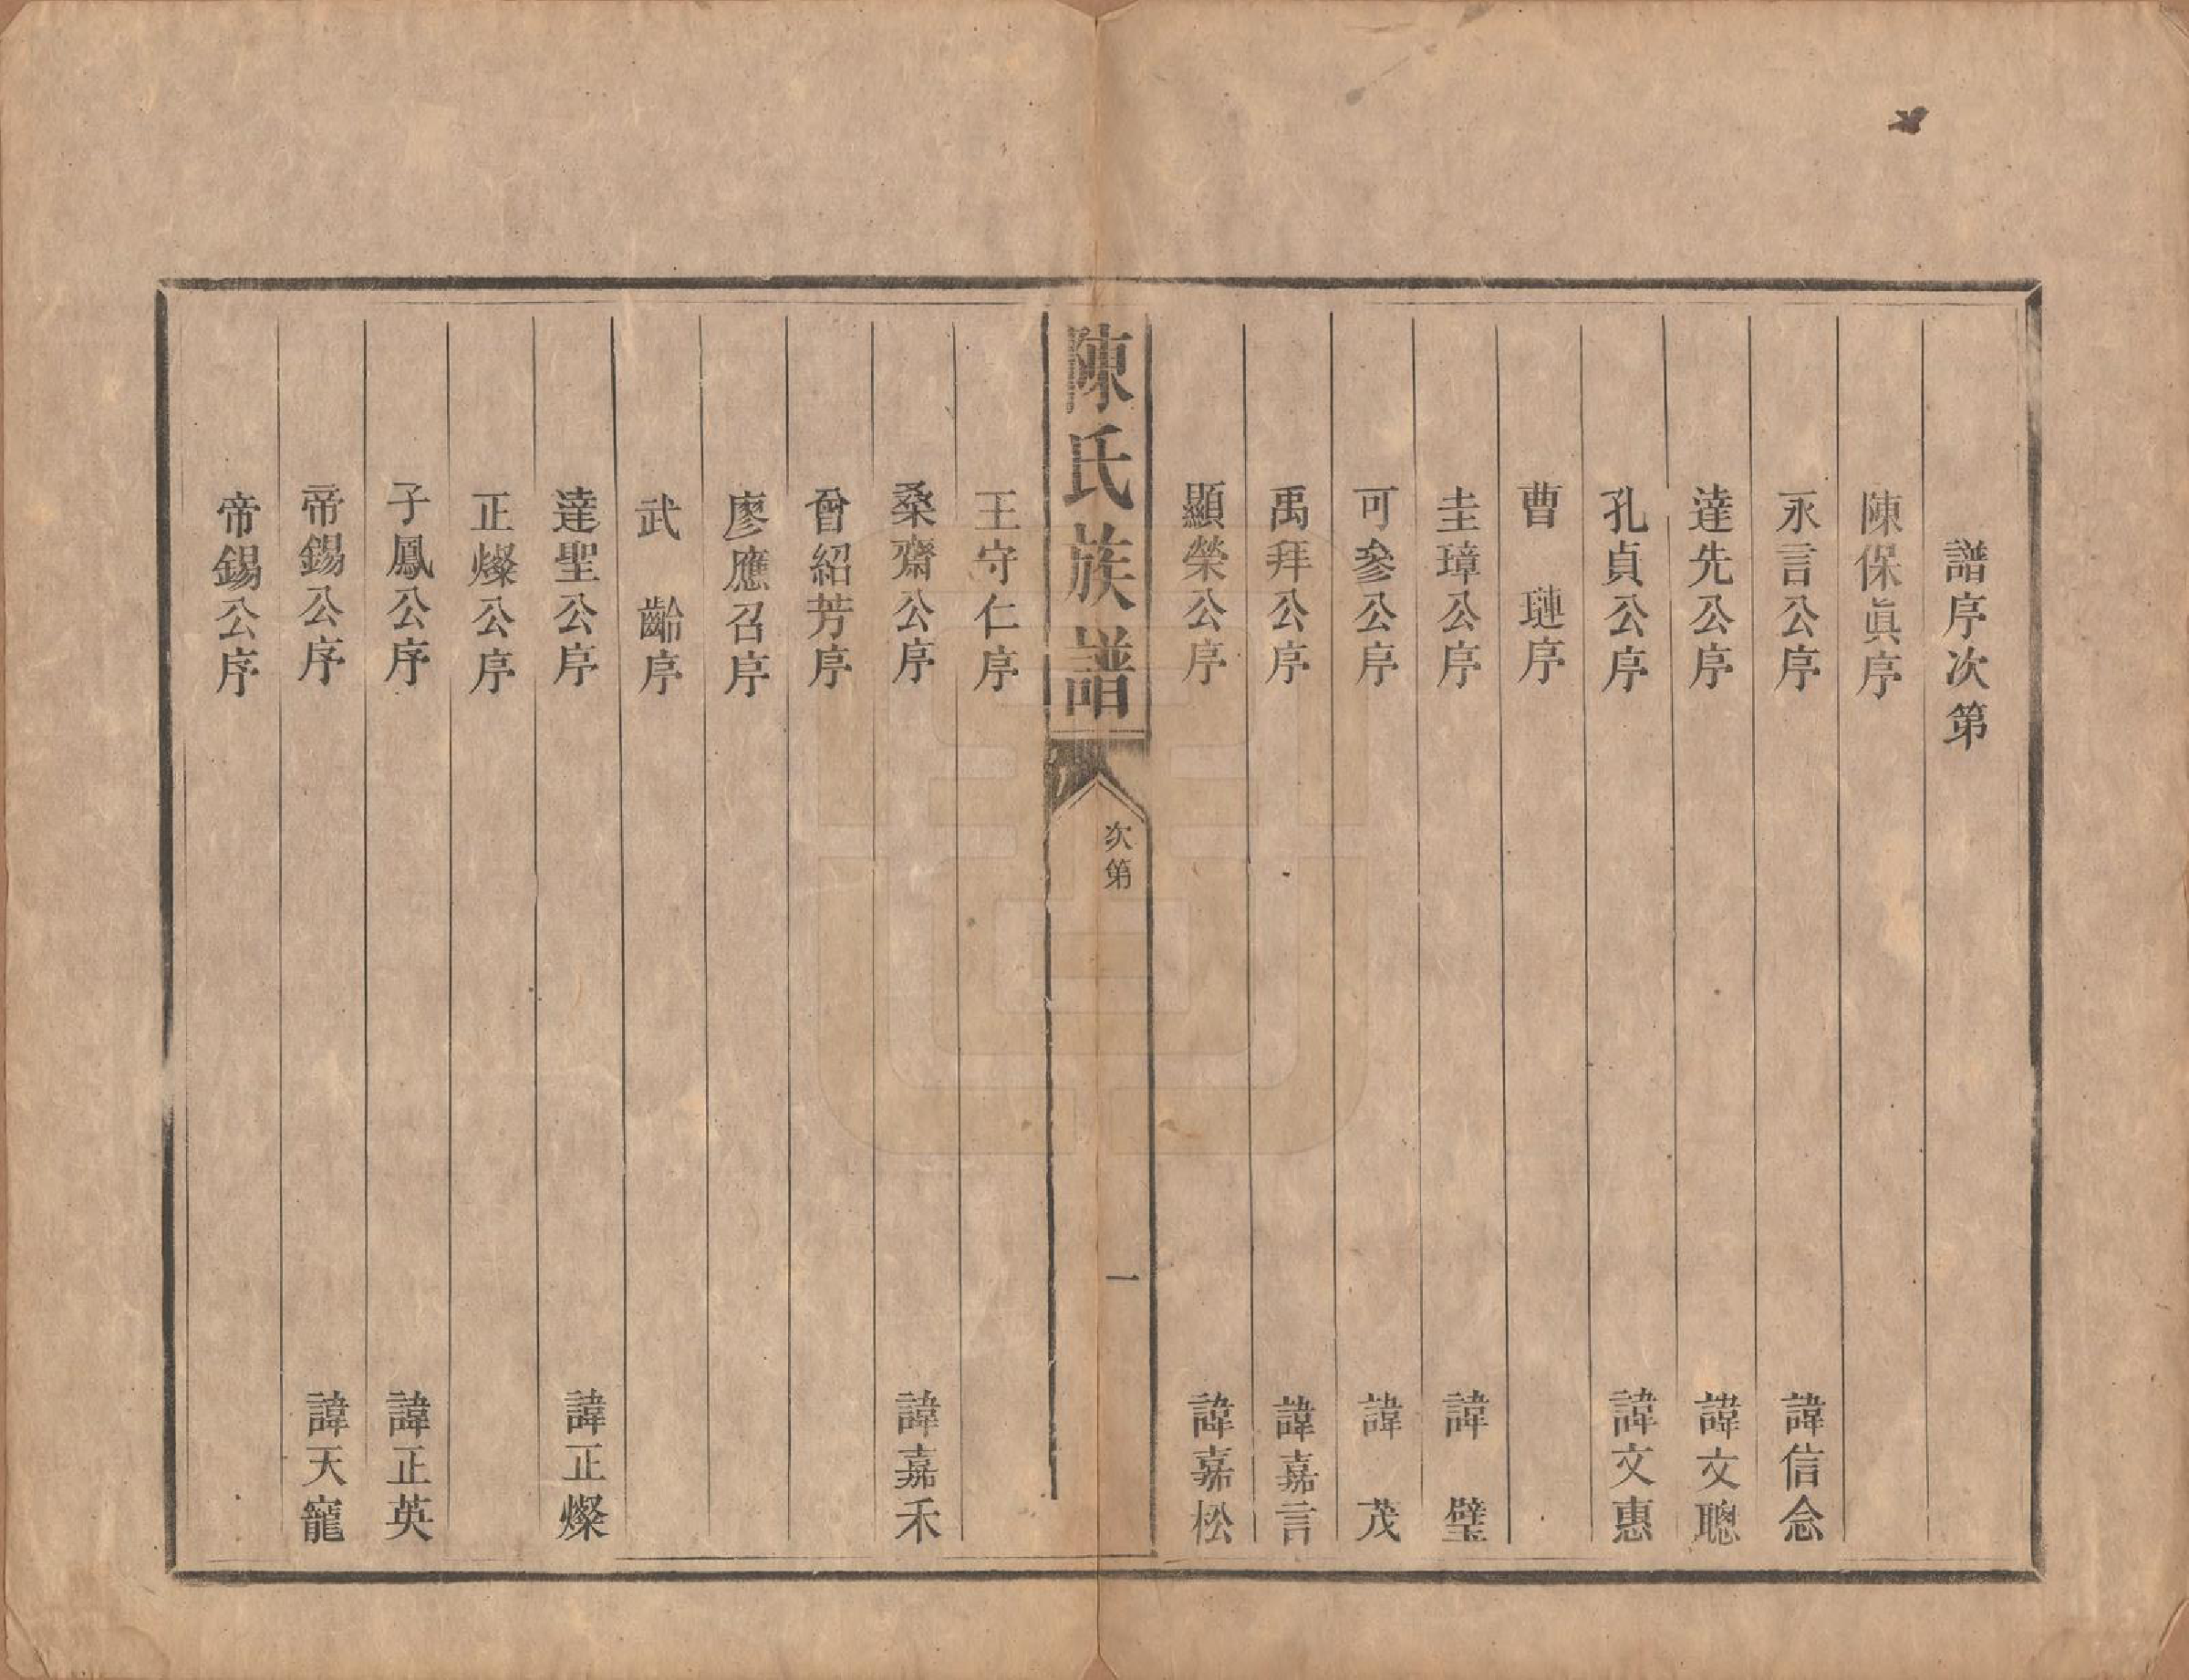 譜序次第
陳保眞序
永言公序 諱信念
達先公序 諱文聰
孔貞公序 諱文惠
曹 璉序
圭璋公序 諱 璧
可參公序 諱 茂
禹拜公序 諱嘉言
顯榮公序 諱嘉松
陳氏族譜 次第 一
王守仁序
桑齋公序 諱嘉禾
曾紹芳序
廖應召序
武 齡序
達聖公序 諱正燦
正燦公序
子鳳公序 諱正英
帝錫公序 諱天寵
帝錫公序